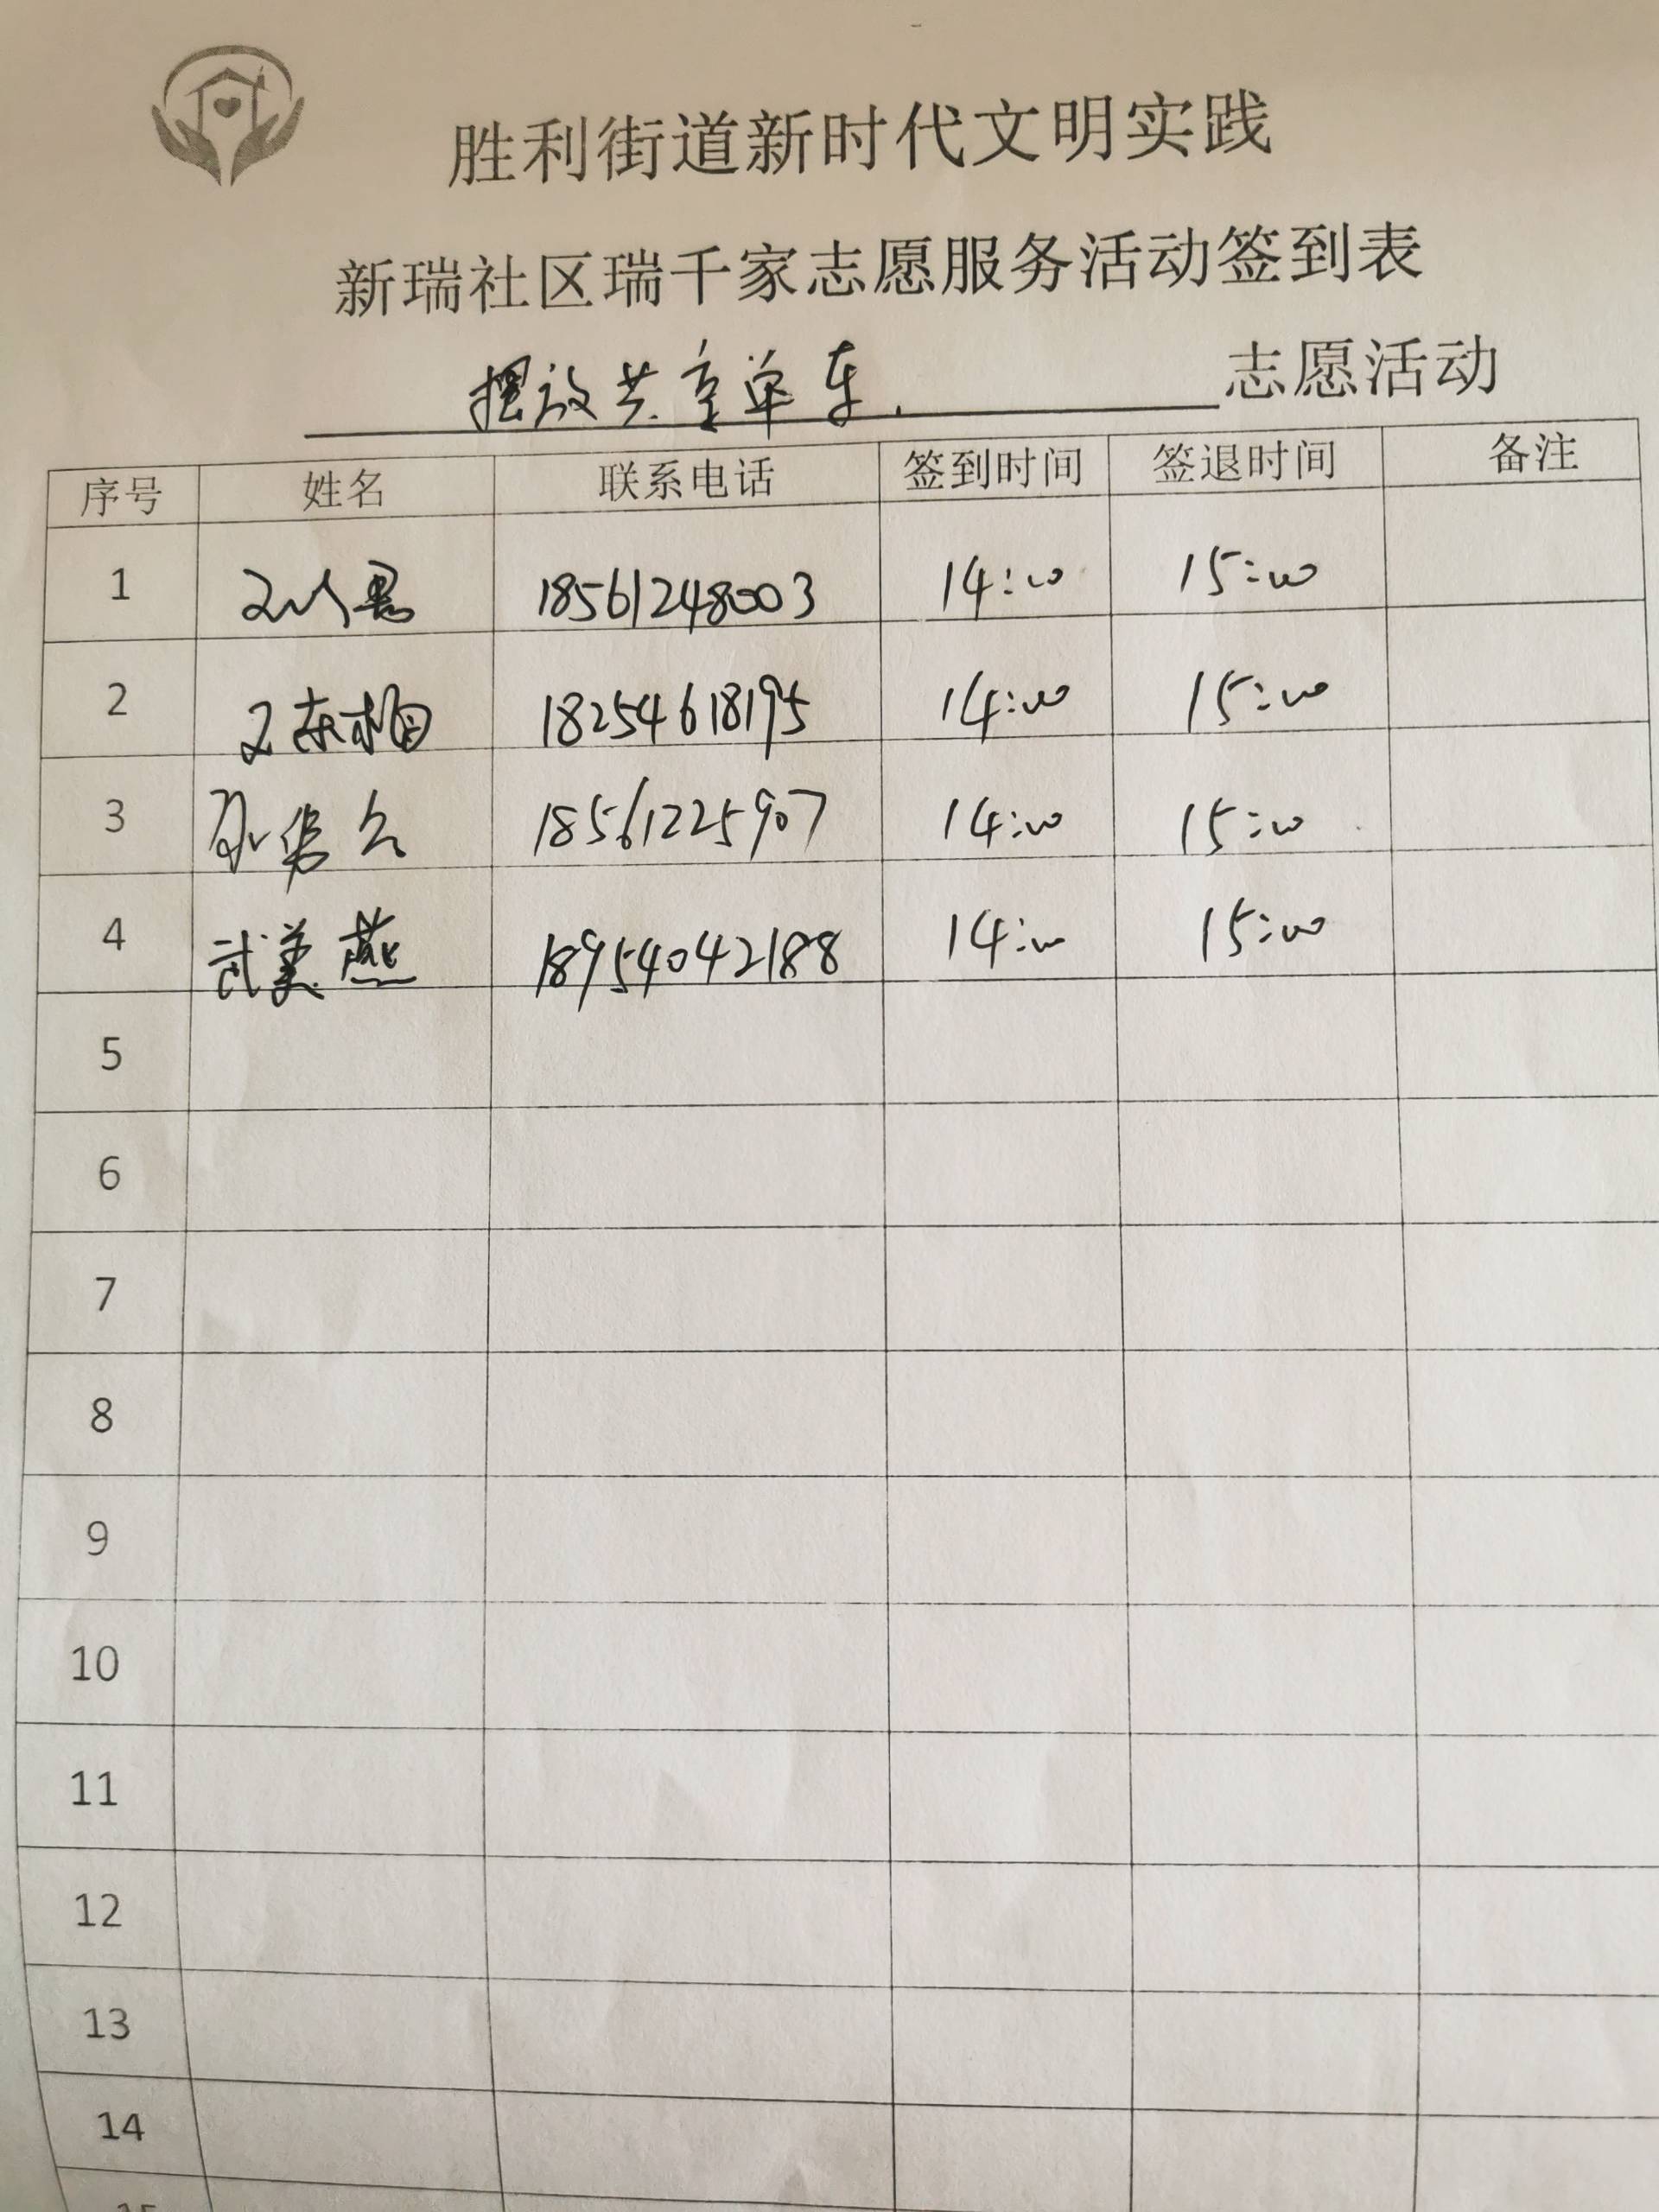 胜利街道新时代文明实践
新瑞社区瑞千家志愿服务活动签到表
摆放共享单车 志愿活动
序号 姓名 联系电话 签到时间 签退时间 备注
1 18561248003 14:00 15:00
2 18254618195 14:00 15:00
3 18561225907 14:00 15:00
4 武美燕 18954042188 14:00 15:00
5
6
7
8
9
10
11
12
13
14
15